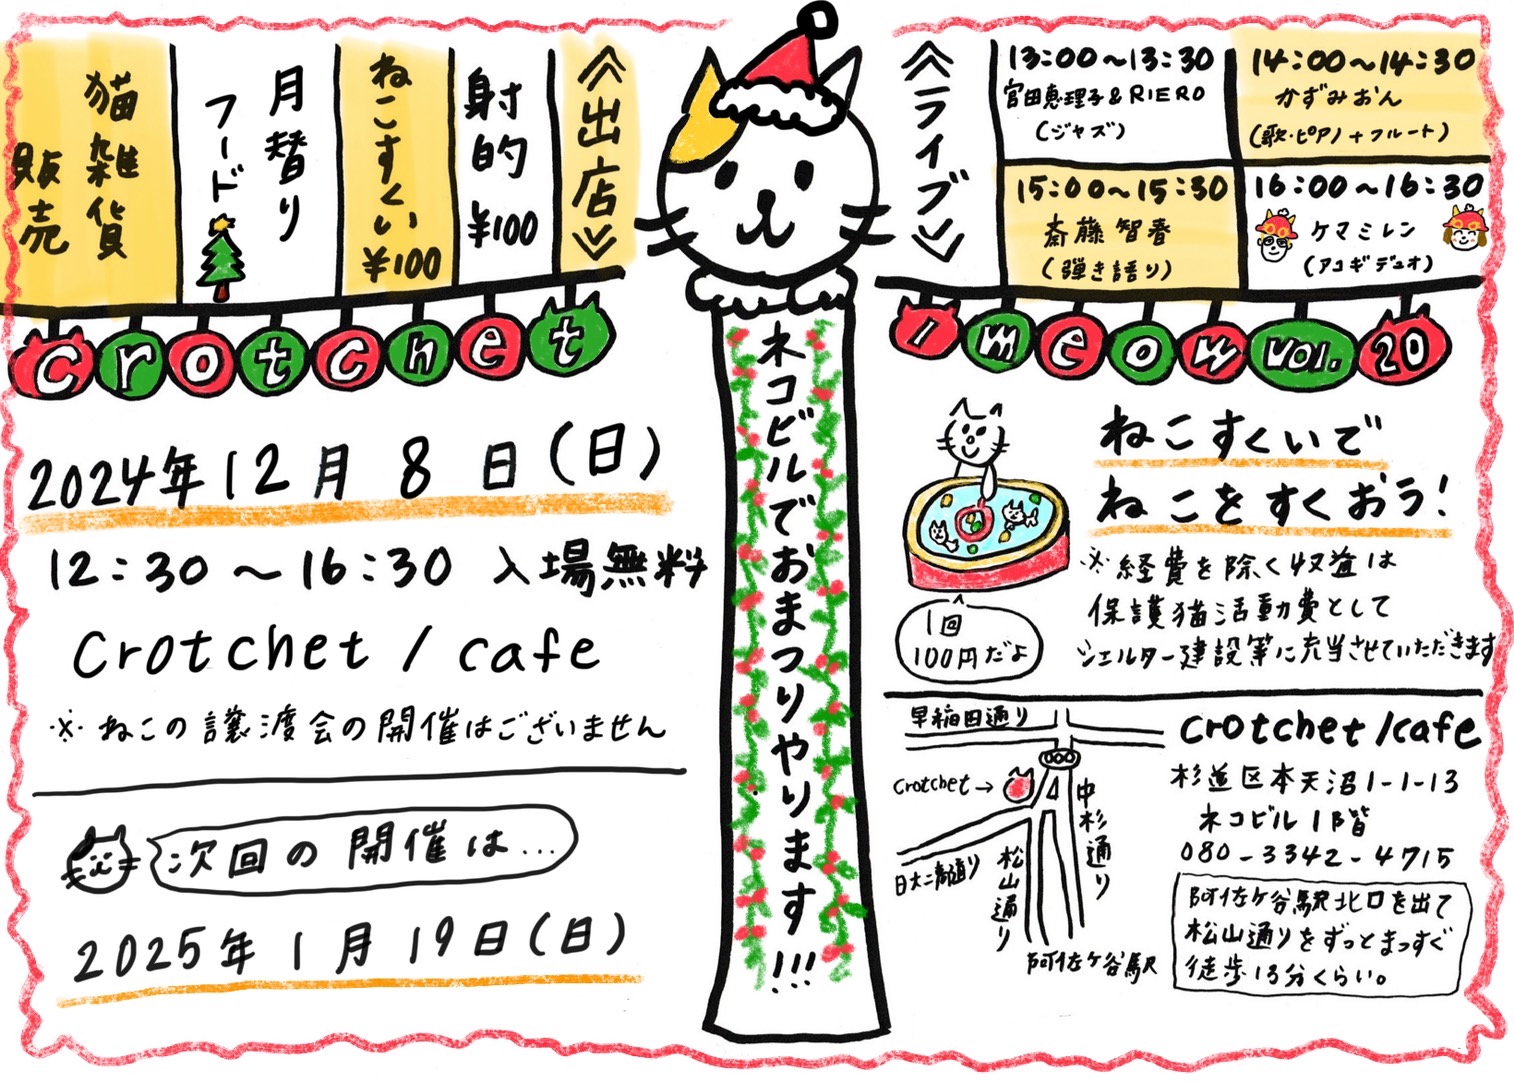 《出店》
射的 ¥100
ねこすくい ¥100
月替り
フード
猫雑貨
販売
crotchet
2024年12月8日(日)
12:30〜16:30 入場無料
Crotchet / cafe
※ねこの譲渡会の開催はございません
次回の開催は...
2025年1月19日(日)
ネコビルでおまつりやります!!!
《ライブ》
13:00〜13:30
宮田恵理子&RIERO
(ジャズ)
14:00〜14:30
かずみおん
(歌・ピアノ+フルート)
15:00〜15:30
斎藤智春
(弾き語り)
16:00〜16:30
ケマミレン
(アコギデュオ)
1meow vol.20
ねこすくいで
ねこをすくおう!
※経費を除く収益は
保護猫活動費として
シェルター建設等に充当させていただきます
1回
100円だよ
早稲田通り
crotchet→
中杉通り
松山通り
日大二高通り
阿佐ケ谷駅
crotchet /cafe
杉並区本天沼1-1-13
ネコビル1階
080-3342-4715
阿佐ケ谷駅北口を出て
松山通りをずっとまっすぐ
徒歩13分くらい。